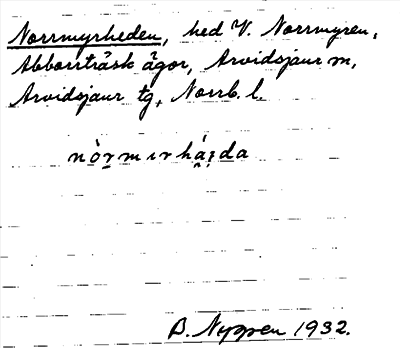 Norrmyrheden, hed V. Norrmyren,
Abborrträsk ägor, Arvidsjaur sn,
Arvidsjaur tg, Norrb. l.
nòrmırhá̯ı̯da
B. Nyppen 1932.